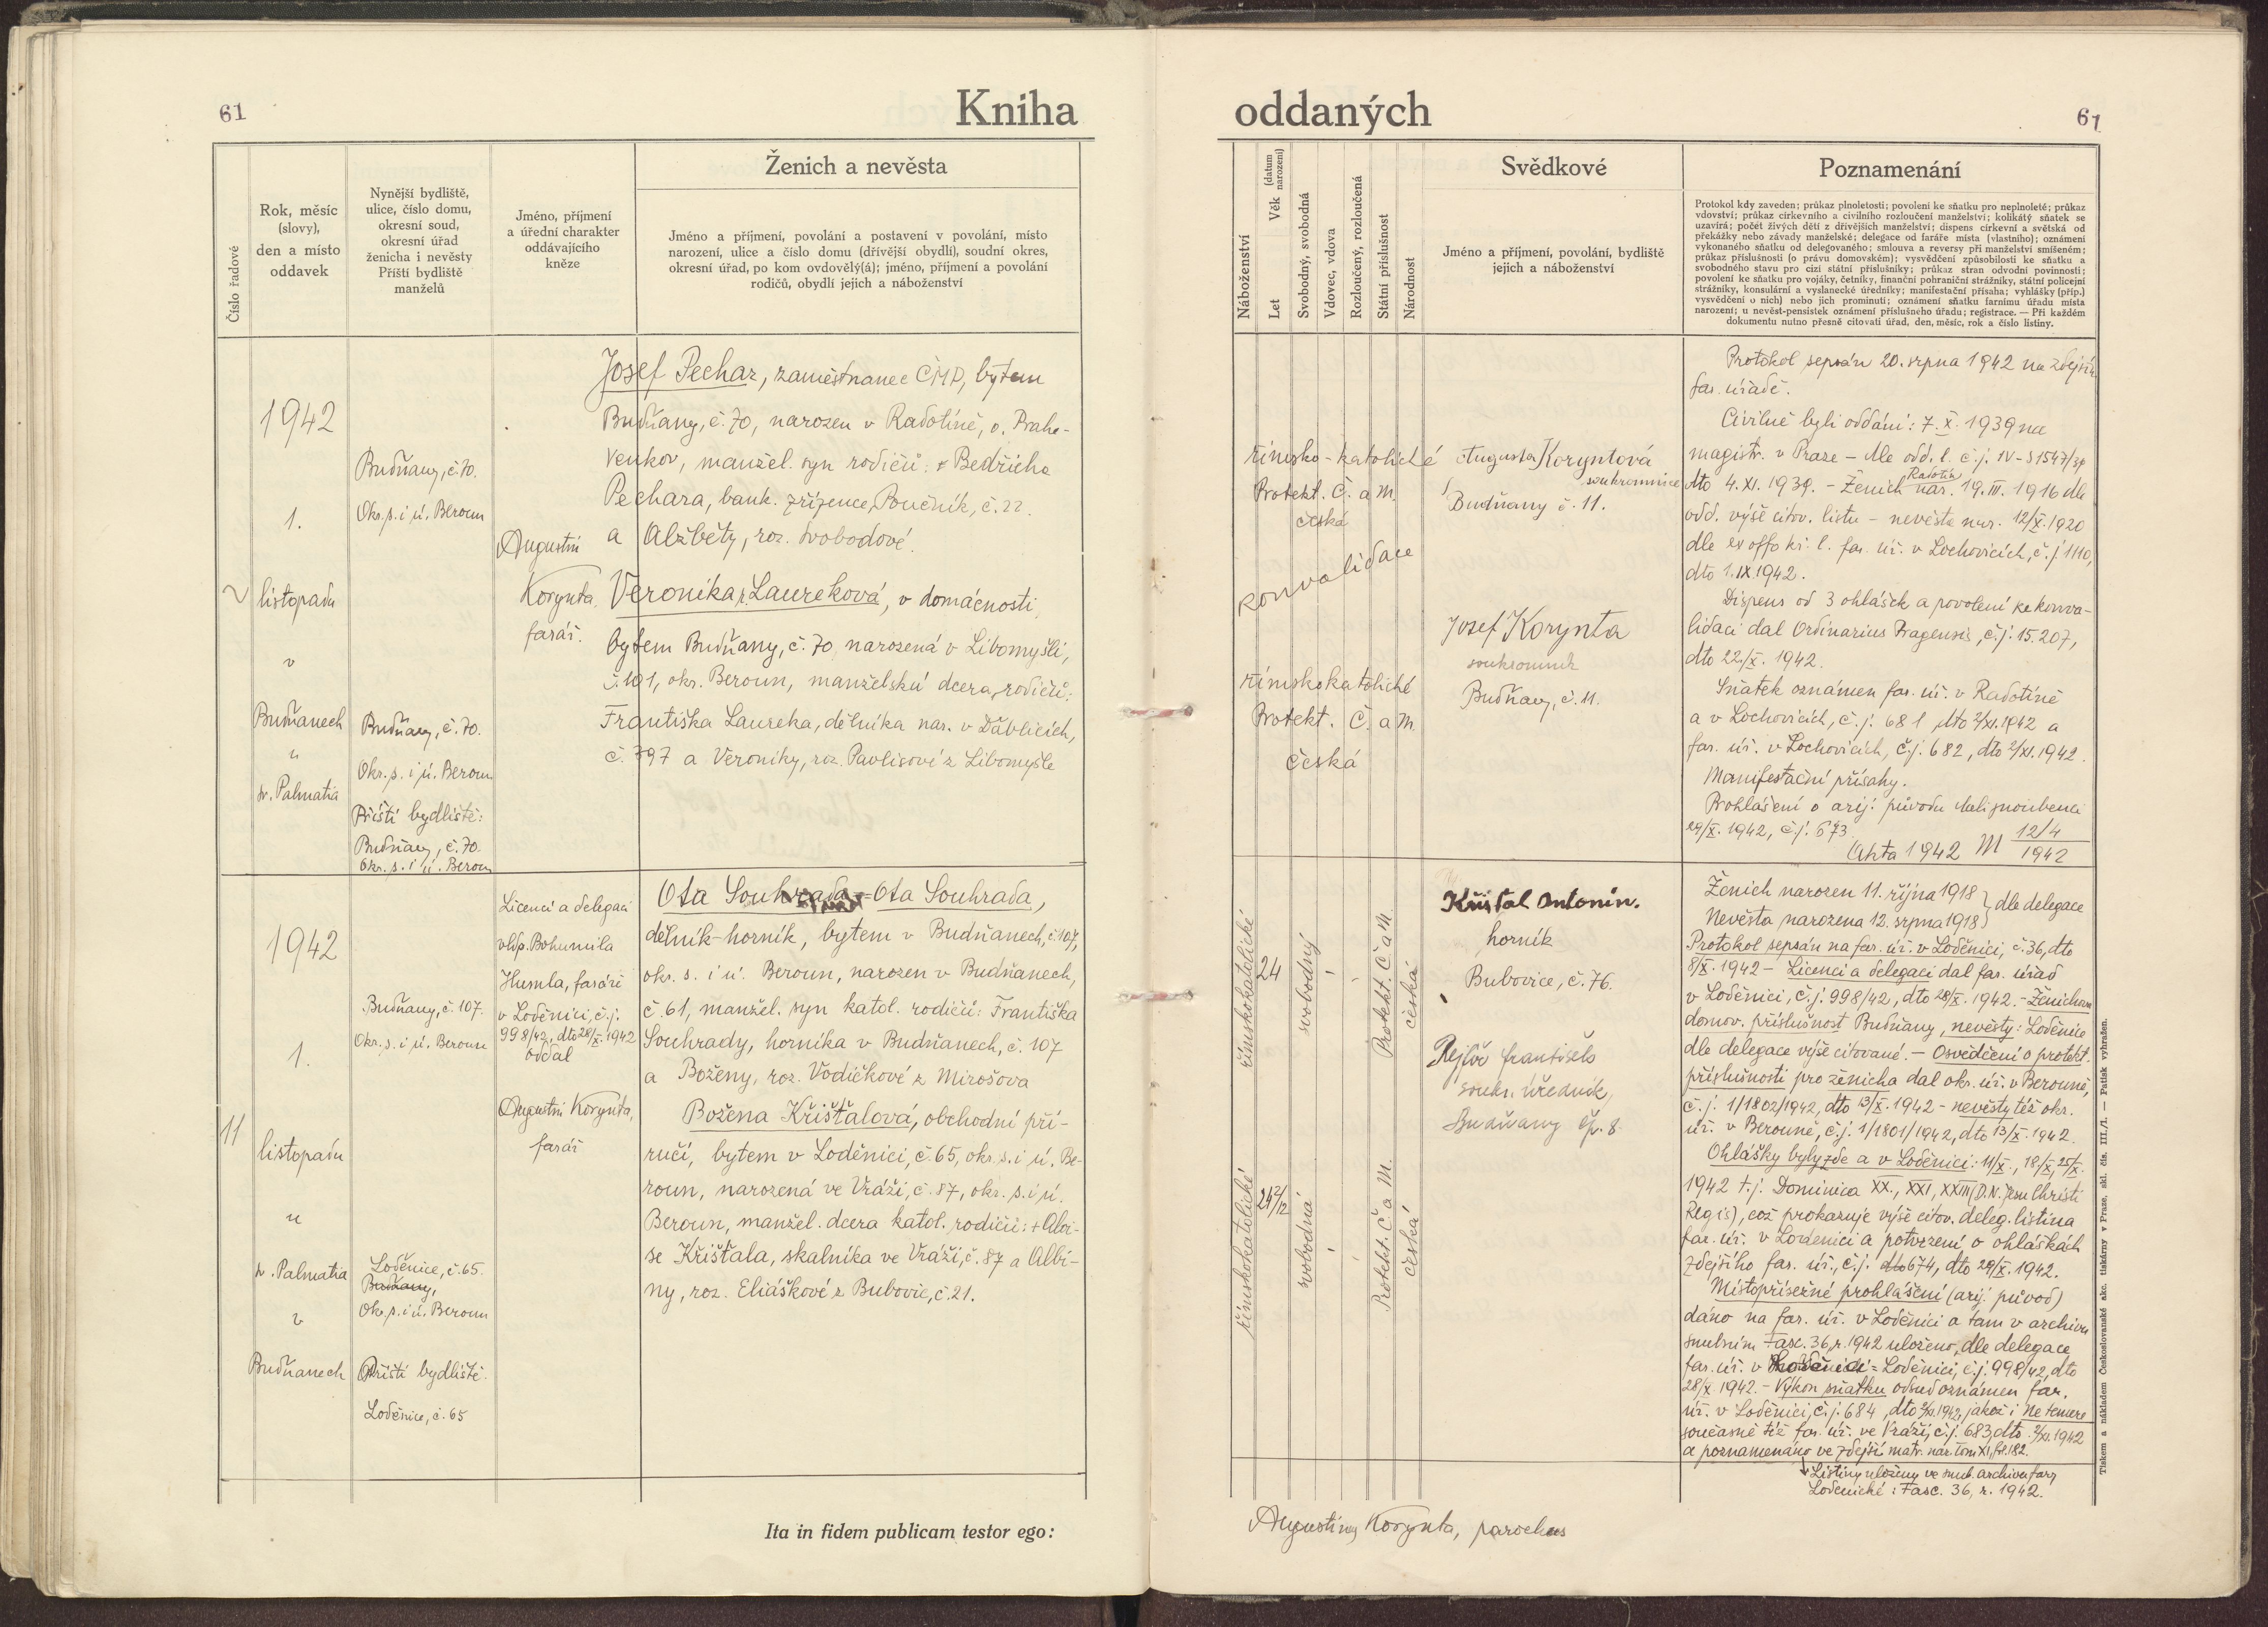 61
Kniha
Číslo řadové
Rok, měsíc
(slovy),
den a místo
oddavek
Nynější bydliště,
ulice, číslo domu,
okresní soud,
okresní úřad
ženicha i nevěsty
Příští bydliště
manželů
Jméno, příjmení
a úřední charakter
oddávajícího
kněze
Ženich a nevěsta
Jméno a příjmení, povolání a postavení v povolání, místo
narození, ulice a číslo domu (dřívější obydlí), soudní okres,
okresní úřad, po kom ovdověl(á); jméno, příjmení a povolání
rodičů, obydlí jejich a náboženství
1942
1.
listopadu
v
Budňanech
u
sv. Palmatia
Budňany, č. 70.
Okr. s. i ú. Beroun
Budňany, č. 70.
Okr. s. i ú. Beroun
Příští bydliště:
Budňany, č. 70.
Okr. s. i ú. Beroun
Augustin
Korynta,
farář.
Josef Pechar, zaměstnanec ČMD, bytem
Budňany, č. 70, narozen v Radotíně, o. Praha-
venkov, manžel. syn rodičů: Bedřicha
Pechara, bank. zřízence, č. 22.
a Alžběty, roz. Svobodové.
Veronika Laureková, v domácnosti,
bytem Budňany, č. 70, narozená v Libomyšli,
č. 101, okr. Beroun, manželská dcera rodičů:
Františka Laureka, dělníka nar. v Ďáblicích,
č. 397 a Veroniky, roz. Pavlisové z Libomyšle
1942
1.
11
listopadu
u
sv. Palmatia
v
Budňanech
Budňany, č. 107.
Okr. s. i ú. Beroun
Loděnice, č. 65.
Budňany,
Okr. s. i ú. Beroun
Příští bydliště:
Loděnice, č. 65
Licencí a delegací
vldp. Bohumila
Humla, faráře
v Loděnici, č. j.
998/42, dto 28/X. 1942
oddal
Augustin Korynta,
farář
Ota Souhrada = Ota Souhrada,
dělník-horník, bytem v Budňanech, č. 107,
okr. s. i ú. Beroun, narozen v Budňanech,
č. 61, manžel. syn katol. rodičů: Františka
Souhrady, horníka v Budňanech, č. 107
a Boženy, roz. Vodičkové z Mirošova
Božena Křišťalová, obchodní pří-
ručí, bytem v Loděnici, č. 65, okr. s. i ú. Be-
roun, narozená ve Vráži, č. 87, okr. s. i ú.
Beroun, manžel. dcera katol. rodičů: + Aloi-
se Křišťala, skalníka ve Vráži, č. 87 a Albí-
ny, roz. Eliáškové z Bubovic, č. 21.
Ita in fidem publicam testor ego:
oddaných
61
Náboženství
Věk (datum narození)
Let
Svobodný, svobodná
Vdovec, vdova
Rozloučený, rozloučená
Státní příslušnost
Národnost
Svědkové
Jméno a příjmení, povolání, bydliště
jejich a náboženství
Poznamenání
Protokol kdy zaveden; průkaz plnoletosti; povolení ke sňatku pro neplnoleté; průkaz
vdovství; průkaz církevního a civilního rozloučení manželství; kolikátý sňatek se
uzavírá; počet živých dětí z dřívějších manželství; dispens církevní a světská od
překážky nebo závady manželské; delegace od faráře místa (vlastního); oznámení
vykonaného sňatku od delegovaného; smlouva a reversy při manželství smíšeném;
průkaz příslušnosti (o právu domovském); vysvědčení způsobilosti ke sňatku a
svobodného stavu pro cizí státní příslušníky; průkaz stran odvodní povinnosti;
povolení ke sňatku pro vojáky, četníky, finanční pohraniční strážníky, státní policejní
strážníky, konsulární a vyslanecké úředníky; manifestační přísaha; vyhlášky (příp.)
vysvědčení o nich) nebo jich prominutí; oznámení sňatku farnímu úřadu místa
narození; u nevěst-pensistek oznámení příslušného úřadu; registrace. — Při každém
dokumentu nutno přesně citovati úřad, den, měsíc, rok a číslo listiny.
římsko-katolické
Protekt. Č. a M.
česká
konvalidace
římskokatolické
Protekt. Č. a M.
česká
Augusta Koryntová
soukromnice
Budňany č. 11.
Josef Korynta
soukromník
Budňany, č. 11.
Protokol sepsán 20. srpna 1942 na zdejším
far. úřadě.
Civilně byli oddáni: 7. X. 1939 na
magistr. v Praze – dle odd. l. č. j. IV-S1547/39
dto 4. XI. 1939. – Ženich nar. Radotín 19. III. 1916 dle
odd. výše citov. listu – nevěsta nar. 12/X. 1920
dle ex offo kř. l. far. úř. v Lochovicích, č. j. 1110,
dto 1. IX. 1942.
Dispens od 3 ohlášek a povolení ke konva-
lidaci dal Ordinarius Pragensis, č. j. 15.207,
dto 22/X. 1942.
Sňatek oznámen far. úř. v Radotíně
a v Lochovicích, č. j. 681, dto 2/XI. 1942 a
far. úř. v Lochovicích, č. j. 682, dto 2/XI. 1942.
Manifestační přísahy.
Prohlášení o arij. původu dali snoubenci
29/X. 1942, č. j. 673.
Akta 1942 M 12/4
1942
římskokatolické
24
svobodný
Protekt. Č. a M.
česká
římskokatolické
24 2/12
svobodná
Protekt. Č. a M.
česká
Křišťal Antonín.
horník
Bubovice, č. 76.
František
soukr. úředník,
Budňany čp. 8.
Ženich narozen 11. října 1918 } dle delegace
Nevěsta narozena 12. srpna 1918
Protokol sepsán na far. úř. v Loděnici, č. 36, dto
8/X. 1942 – Licenci a delegaci dal far. úřad
v Loděnici, č. j. 998/42, dto 28/X. 1942. – Ženichova
domov. příslušnost Budňany, nevěsty: Loděnice
dle delegace výše citované. – Osvědčení o protekt.
příslušnosti pro ženicha dal okr. úř. v Berouně,
č. j. 1/1802/1942, dto 13/X. 1942 – nevěsty též okr.
úř. v Berouně, č. j. 1/1801/1942, dto 13/X. 1942.
Ohlášky byly zde a v Loděnici: 11/X., 18./X, 25/X.
1942 t. j. Dominica XX., XXI, XXIII (D. N. Jesu Christi
Regis), což prokazuje výše citov. deleg. listina
far. úř. v Loděnici a potvrzení o ohláškách
zdejšího far. úř., č. j. dto 674, dto 29/X. 1942.
Místopřísežné prohlášení (arij. původ)
dáno na far. úř. v Loděnici a tam v archivu
snubním Fasc. 36, r. 1942 uloženo, dle delegace
far. úř. v = Loděnici, č. j. 998/42, dto
28/X. 1942. – Výkon sňatku odsud oznámen far.
úř. v Loděnici, č. j. 684, dto 2/XI. 1942, jakož i Ne temere
současně též far. úř. ve Vráži, č. j. 683, dto 2/XI. 1942
a poznamenáno ve zdejší matr. nar. tom XI, fol. 182.
Listiny uloženy ve snub. archivu fary
Loděnické: Fasc. 36, r. 1942.
Augustin Korynta, parochus
Tiskem a nákladem Československé akc. tiskárny v Praze, skl. čís. III./1. — Patisk vyhražen.